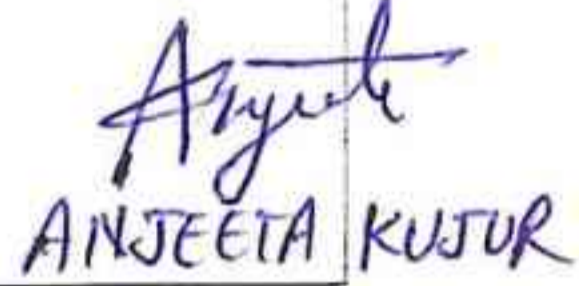 Anjeeta
ANJEETA KUJUR